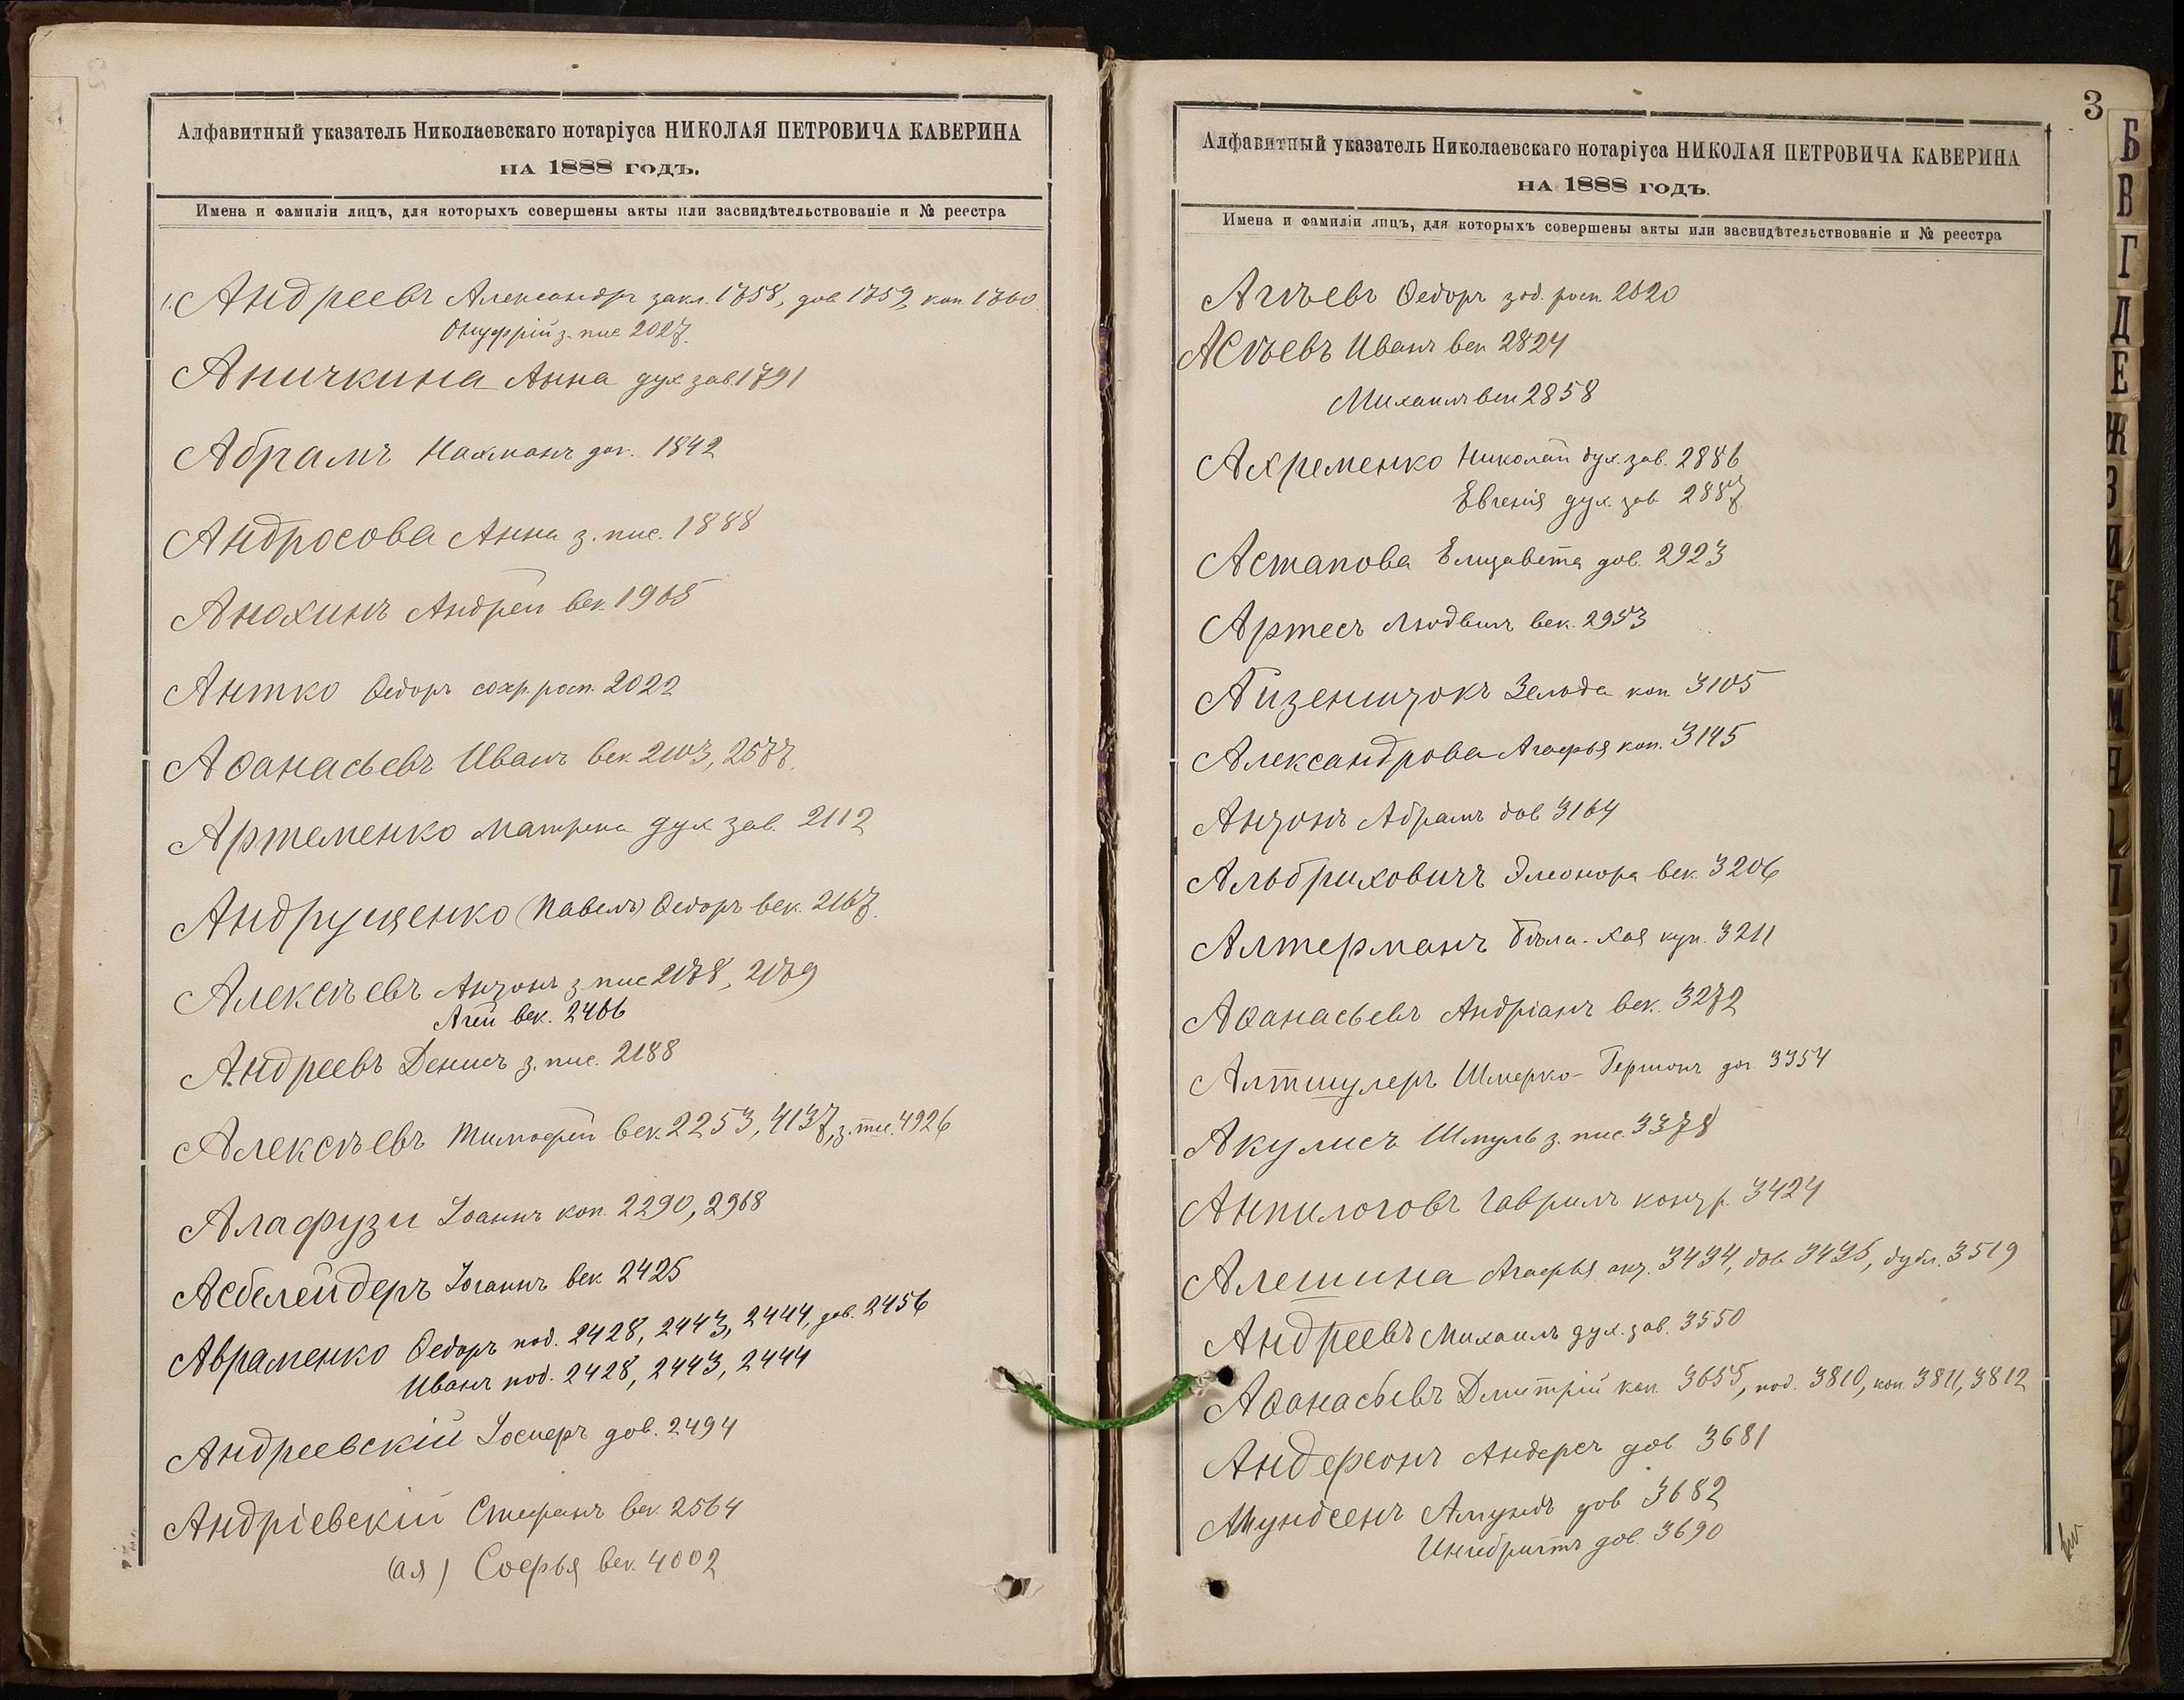 Алфавитный указатель Николаевскаго нотаріуса НИКОЛАЯ ПЕТРОВИЧА КАВЕРИНА
НА 1888 ГОДЪ.
Имена и фамиліи лицъ, для которыхъ совершены акты или засвидѣтельствованіе и № реестра
Андреевъ Александръ закл. 1758, дов 1759, коп. 1760
Онуфрій з. пис 2027.
Аничкина Анна дух зав. 1791
Абрамъ Нахманъ дог. 1842
Андросова Анна з. пис. 1888
Анохинъ Андрей век 1965
Антко Ѳедоръ сохр. росп. 2022
Аѳанасьевъ Иванъ век. 2103, 2577.
Артеменко Матрена дух зав. 2112
Андрущенко (Павелъ) Ѳедоръ век. 2167.
Алексѣевъ Антонъ з. пис 2178, 2179
Агей век. 2466
Андреевъ Денисъ з. пис. 2188
Алексѣевъ Тимофей век. 2253, 4137, з. пис. 4926
Алафузи Іоаннъ коп. 2290, 2968
Асбелейдеръ Іоганнъ век 2425
Авраменко Ѳедоръ под. 2428, 2443, 2444, дов. 2456
Иванъ под. 2428, 2443, 2444
Андреевскій дов. 2494
Андріевскій Стефанъ век. 2564
(ая) Софья век. 4002
3
Алфавитный указатель Николаевскаго нотаріуса НИКОЛАЯ ПЕТРОВИЧА КАВЕРИНА
НА 1888 ГОДЪ.
Имена и фамиліи лицъ, для которыхъ совершены акты или засвидѣтельствованіе и № реестра
Агѣевъ Ѳедоръ зад. росп 2620
Асѣевъ Иванъ век 2824
Михаилъ век 2858
Ахременко Николай дух. зав. 2886
Евгенія дух. зав 2887
Астапова Елизавета дов. 2923
Артесъ Людвигъ век. 2953
Айзенштокъ Зельда коп 3105
Александрова Агафья коп. 3145
Анзонъ Абрамъ дов 3164
Альбриховичъ Элеонора век. 3206
Алтерманъ Бѣла-Хая куп. 3211
Аѳанасьевъ Андріанъ век. 3272
Алтшулеръ Шмерко-Гершонъ дог 3354
Акулисъ Шмуль з. пис. 3378
Анпилоговъ Гаврилъ 3424
Алешина Агафья 3434, дов. 3435, дубл. 3519
Андреевъ Михаилъ дух. зав. 3550
Аѳанасьевъ Дмитрій коп. 3655, под. 3810, коп. 3811, 3812
Андерсонъ Андерсъ дов 3681
Амундсенъ Амундъ дов 3682
Ингебригтъ дов. 3690
Б
В
Г
Д
Е
Ж
З
И
К
Л
М